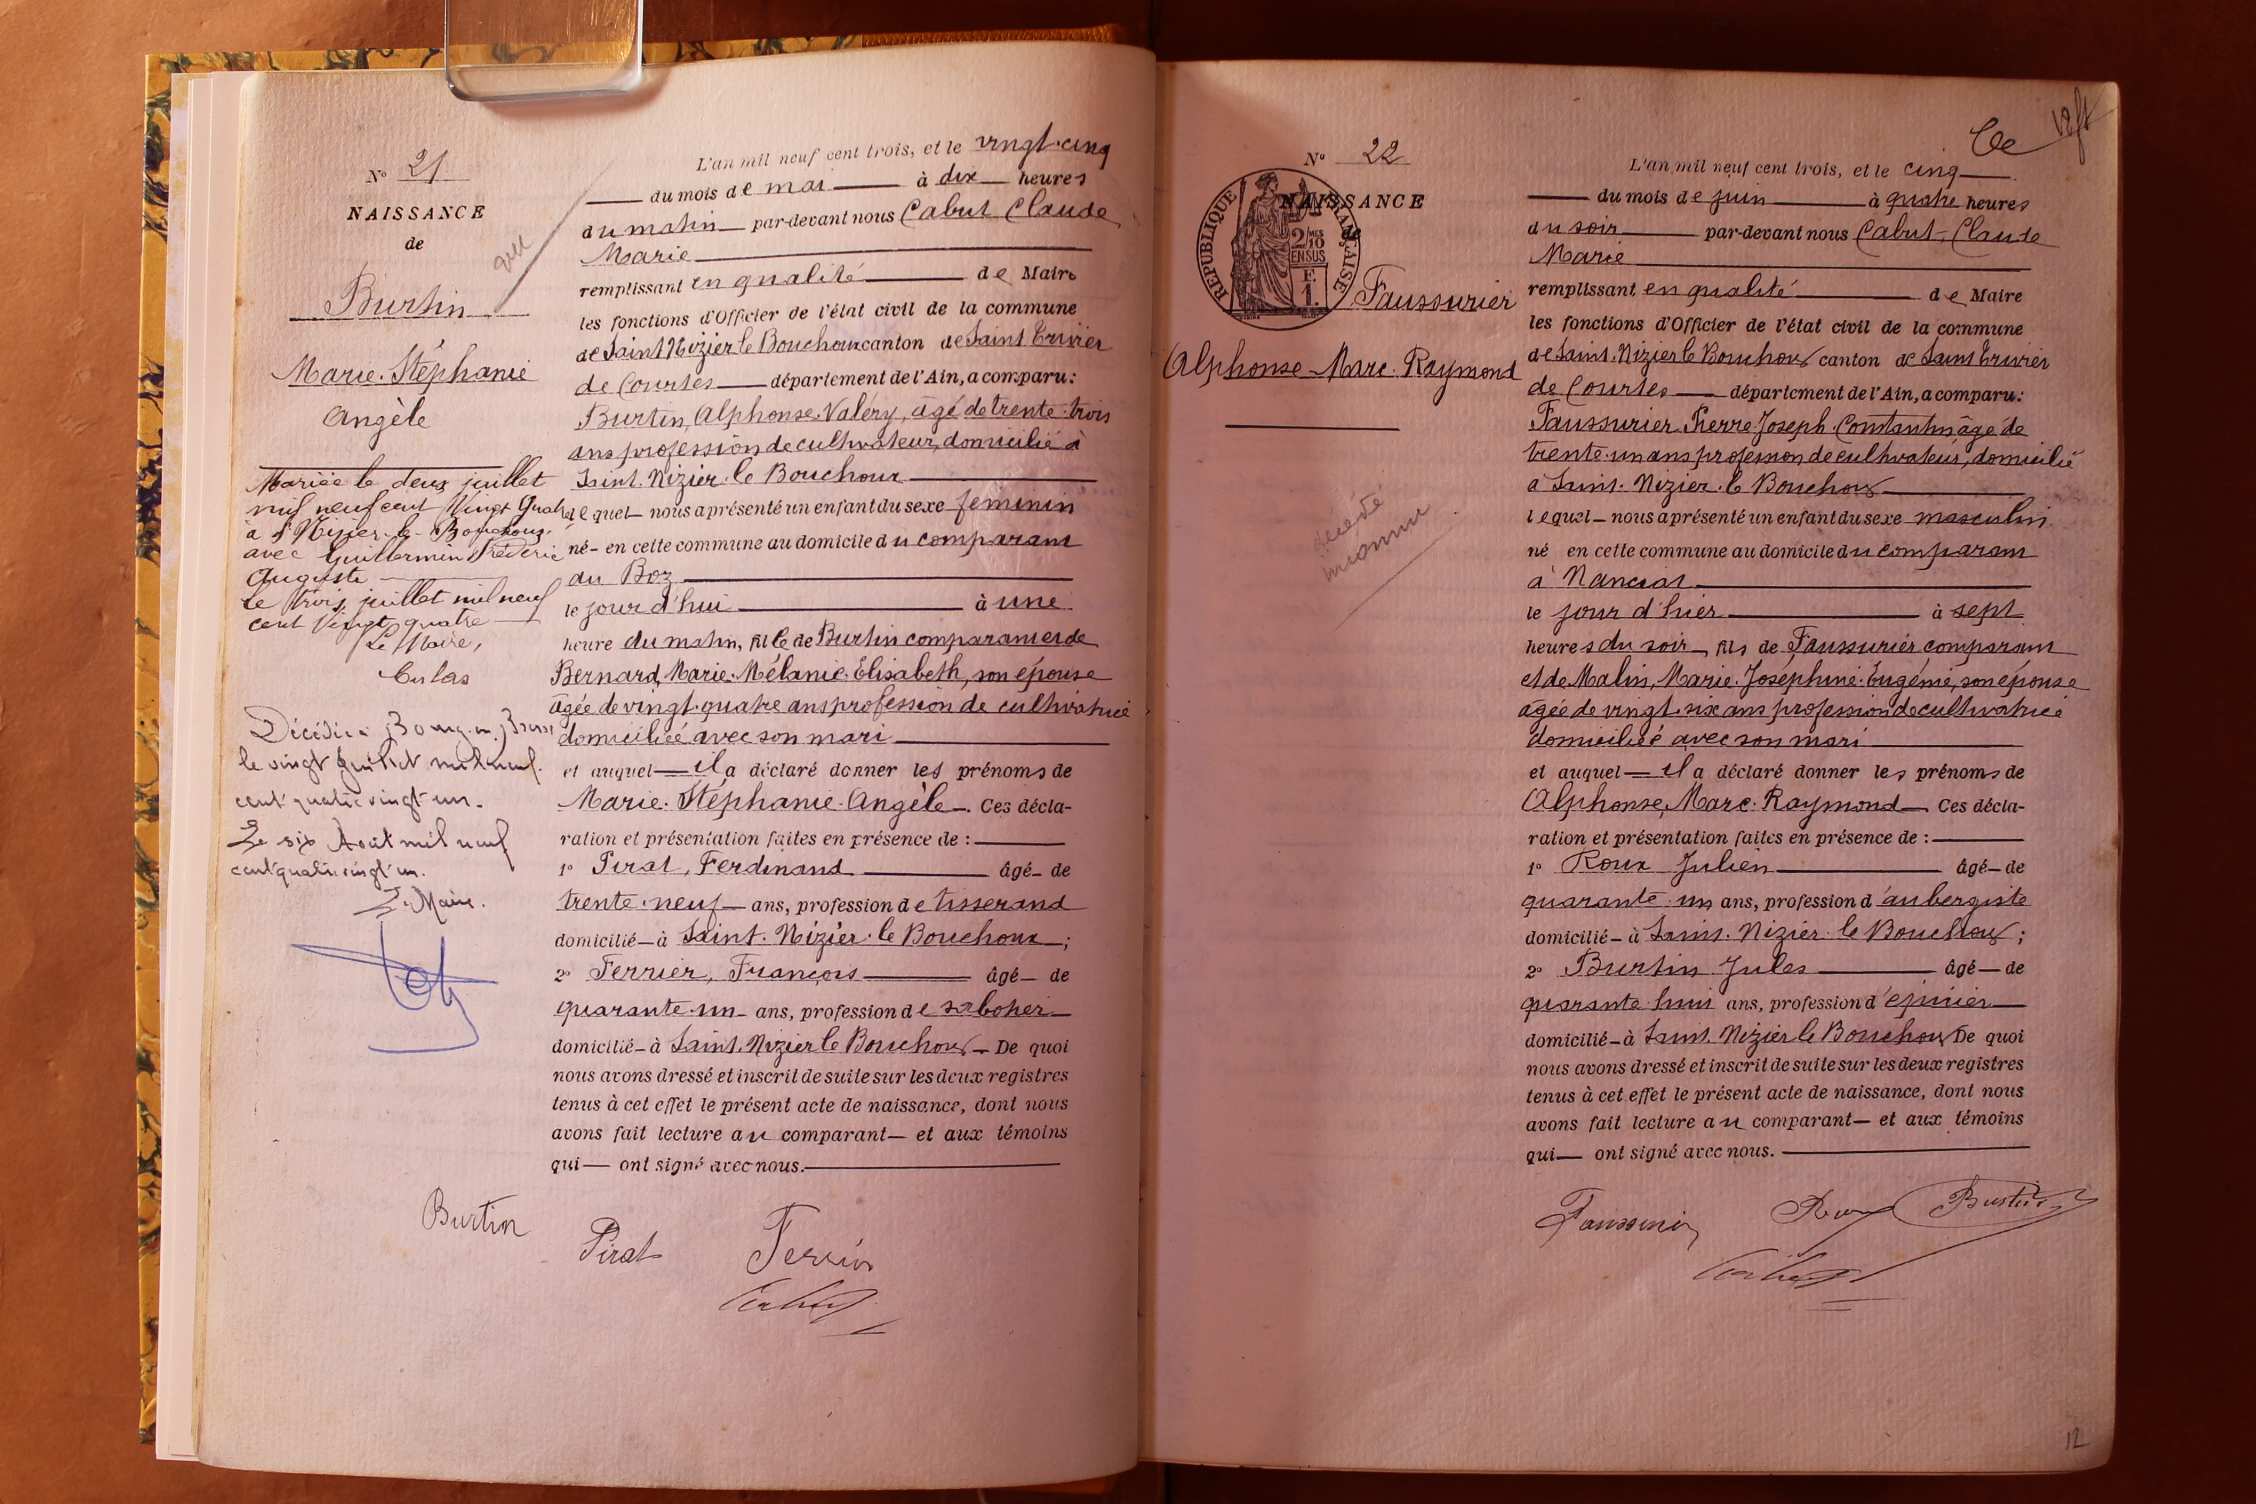 N° 21
NAISSANCE
de
Burtin
Marie Stéphanie
Angèle
Mariée le deux juillet
mil neuf cent Vingt Quatre
à St Nizier-le-Bouchoux
avec Guillermin Frédéric
Auguste
Le trois juillet mil neuf
cent vingt quatre
Le Maire,
Décédée à Bourg-en-Bresse
le vingt juillet mil neuf
cent quatre vingt un.
Le six Août mil neuf
cent quatre vingt un.
Le Maire.
L'an mil neuf cent trois, et le vingt-cinq
du mois de mai à dix heures
du matin par-devant nous Cabut Claude
Marie
remplissant en qualité de Maire
les fonctions d'Officier de l'état civil de la commune
de Saint Nizier le Bouchoux canton de Saint Trivier
de Courtes département de l'Ain, a comparu:
Burtin, Alphonse Valéry, âgé de trente-trois
ans profession de cultivateur, domicilié à
Saint-Nizier-le Bouchoux
lequel nous a présenté un enfant du sexe féminin
né en cette commune au domicile du comparant
au Boz
le jour d'hui à une
heure du matin, fille de Burtin comparant et de
Bernard, Marie-Mélanie-Elisabeth, son épouse
âgée de vingt-quatre ans profession de cultivatrice
domiciliée avec son mari
et auquel il a déclaré donner les prénoms de
Marie-Stéphanie-Angèle. Ces décla-
ration et présentation faites en présence de :
1° Pirat, Ferdinand âgé de
trente-neuf ans, profession de tisserand
domicilié à Saint-Nizier-le Bouchoux ;
2° Ferrier, François âgé de
quarante-un ans, profession de sabotier
domicilié à Saint-Nizier le Bouchoux De quoi
nous avons dressé et inscrit de suite sur les deux registres
tenus à cet effet le présent acte de naissance, dont nous
avons fait lecture au comparant et aux témoins
qui ont signé avec nous.
Burtin
Pirat
N° 22
NAISSANCE
RÉPUBLIQUE FRANÇAISE
2/10
EN SUS
Faussurier
Alphonse-Marc-Raymond
décédé
inconnu
L'an mil neuf cent trois, et le cinq
du mois de juin à quatre heures
du soir par-devant nous Cabut-Claude
Marie
remplissant en qualité de Maire
les fonctions d'Officier de l'état civil de la commune
de Saint-Nizier le Bouchoux canton de Saint Trivier
de Courtes département de l'Ain, a comparu:
Faussurier Pierre-Joseph-Constantin âgé de
trente-un ans profession de cultivateur, domicilié
à Saint-Nizier-le Bouchoux
lequel nous a présenté un enfant du sexe masculin
né en cette commune au domicile du comparant
à Nanciat
le jour d'hier à sept
heures du soir, fils de Faussurier comparant
et de Malin, Marie-Joséphine-Eugénie, son épouse
âgée de vingt-six ans profession de cultivatrice
domiciliée avec son mari
et auquel il a déclaré donner les prénoms de
Alphonse, Marc-Raymond Ces décla-
ration et présentation faites en présence de :
1° Roux Julien âgé de
quarante-un ans, profession d'aubergiste
domicilié à Saint-Nizier-le Bouchoux ;
2° Burtin Jules âgé de
quarante-huit ans, profession d'épicier
domicilié à Saint-Nizier le Bouchoux De quoi
nous avons dressé et inscrit de suite sur les deux registres
tenus à cet effet le présent acte de naissance, dont nous
avons fait lecture au comparant et aux témoins
qui ont signé avec nous.
Faussurier
Roux
Burtin
12